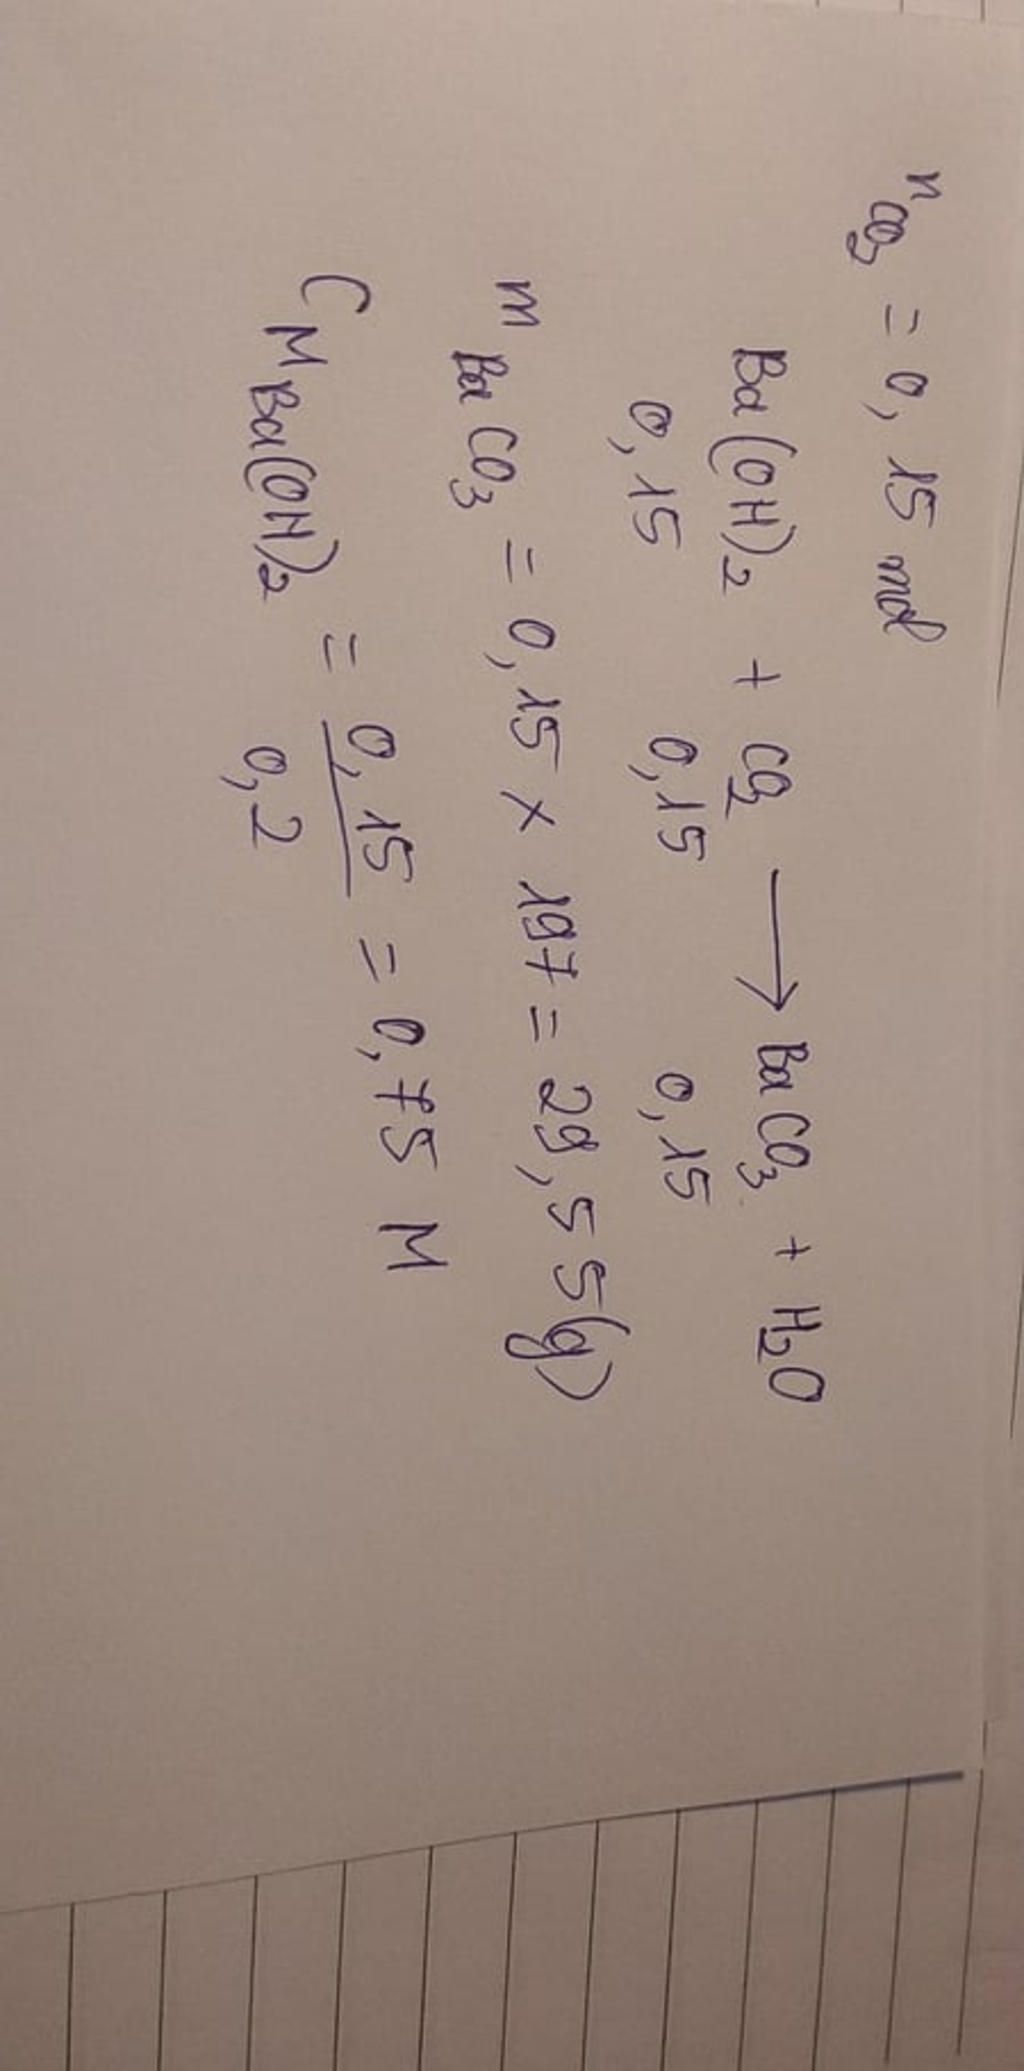 n CO2 = 0,15 mol
Ba(OH)2 + CO2 → BaCO3 + H2O
0,15 0,15 0,15
m BaCO3 = 0,15 x 197 = 29,55(g)
CM Ba(OH)2 = 0,15 / 0,2 = 0,75 M